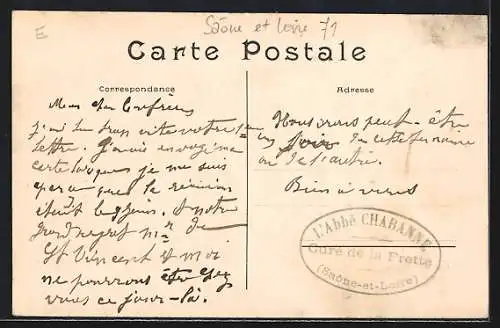 E
Saône et Loire 71
Carte Postale
Correspondance
Mon cher Confrère
J'ai lu trop vite votre
lettre. J'avais envoyé ma
carte lorsque je me suis
que la réunion
était le Et notre
grand regret Mr de
St Vincent et moi
ne pourrons être chez
vous ce jour-là.
Adresse
Nous irons peut-être
un jour de cette semaine
ou de l'autre.
Bien à vous
L'Abbé CHABANNE
Curé de la Frette
(Saône-et-Loire)